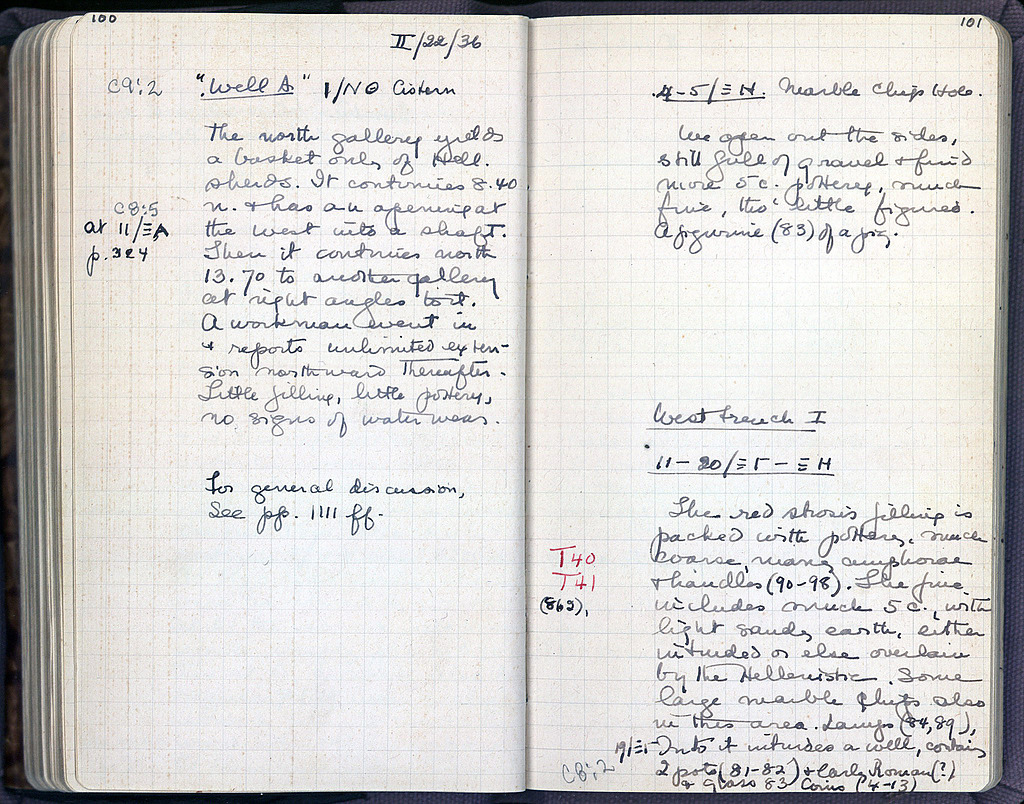 100
II/22/36
C9:2 "Well A" 1/ΝΘ Cistern
The north gallery yields
a basket only of Hell.
sherds. It continues 8.40
m. & has an opening at
the west into a shaft.
Then it continues north
13.70 to another gallery
at right angles to it.
A workman went in
& reports unlimited exten-
sion northward thereafter.
Little filling, little pottery,
no signs of water wear.
C8:5
at 11/ΞΑ
p. 324
For general discussion,
See pp. 1111 ff.
101
4-5/ΞΗ. Marble Chip Hole.
We open out the sides,
still full of gravel & find
more 5 c. pottery, much
fine, tho' little figured.
A figurine (83) of a pig.
West Trench I
11-20/ΞΓ-ΞΗ
The red strosis filling is
packed with pottery, much
coarse, many amphorae
& handles (90-98). The fine
includes much 5 c., with
light sandy earth, either
intruded or else overlain
by the Hellenistic. Some
large marble chips also
in this area. Lamps (84, 89),
T40
T41
(863),
19/ΞΓ Into it intrudes a well, contains
C8:2 2 pots (81-82) & Early Roman (?)
& Glass 83 Coins (4-13)